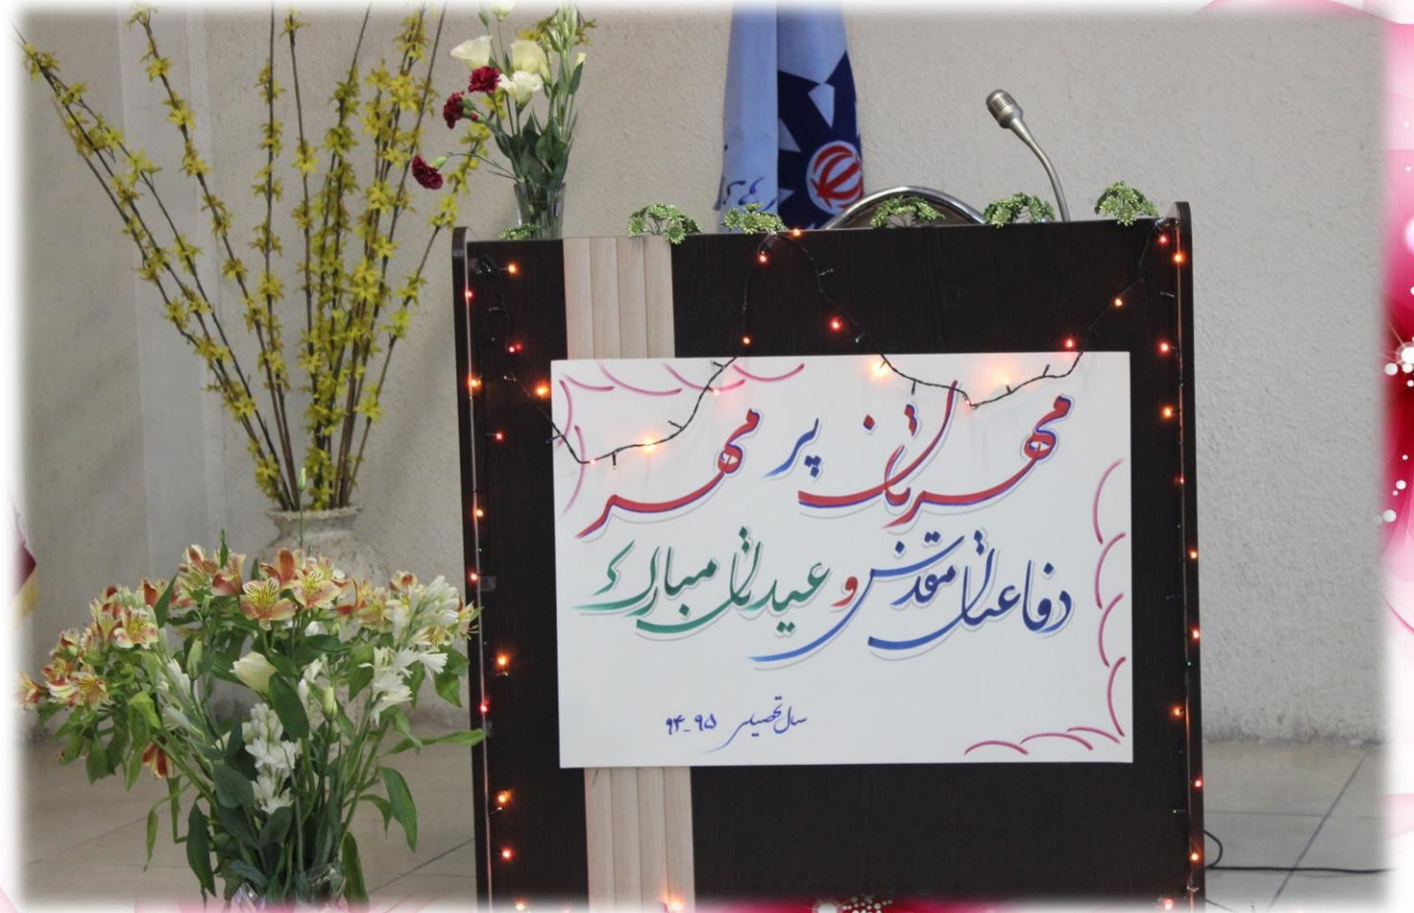 مهربان پر مهر
دفاعتان مقدس و عیدتان مبارک
سال تحصیلی ۹۵-۹۴